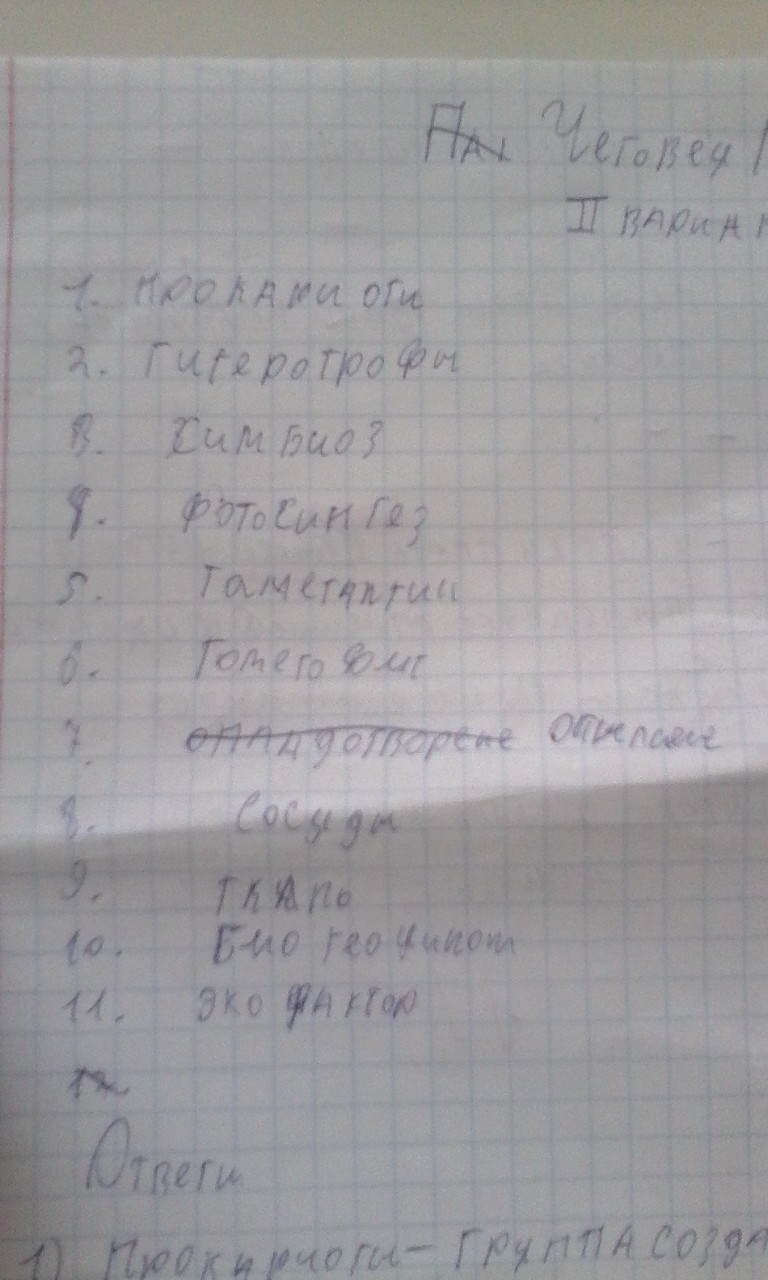 Человец
II вариан
1. прокамиоти
2. Гитеротрофы
3. Химбиоз
4. Фотосинтез
5. Гаметаптии
6. Гометофит
7. опладотворене опыление
8. Сосуды
9. ткапь
10. Био геоцинот
11. эко фактор
12
Ответи
1) Прокириоти - группа созда